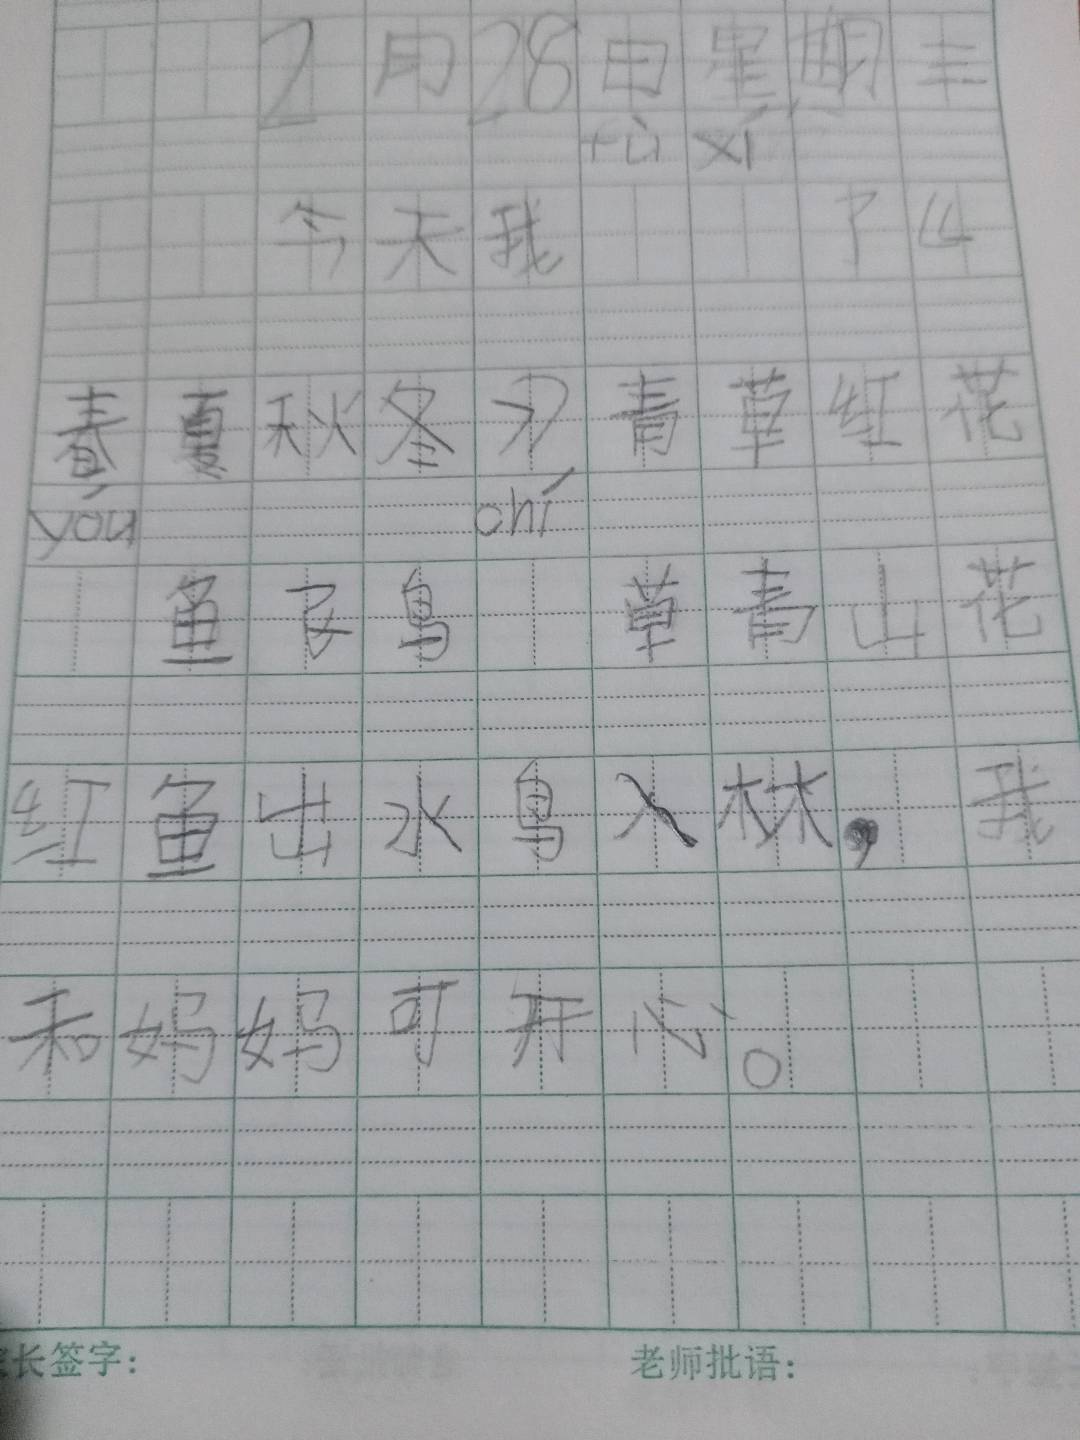 2月28日星期三
fù xí
今天我 了
春夏秋冬 青草红花
yóu chí
鱼 鸟 草青山花
红鱼出水鸟入林，我
和妈妈可开心。
家长签字： 老师批语：